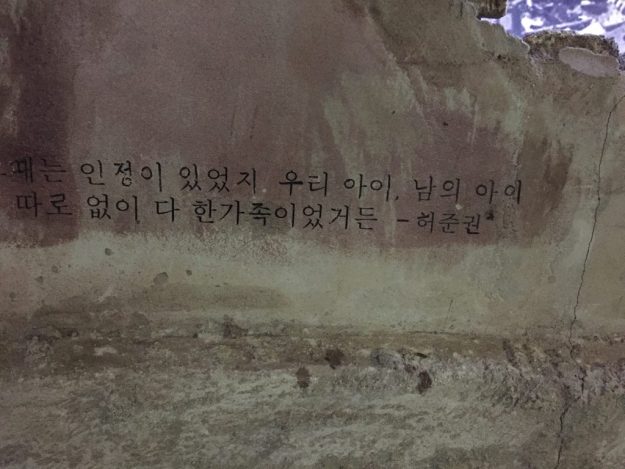 때는 인정이 있었지 우리 아이, 남의 아이
따로 없이 다 한가족이었거든 - 허준권